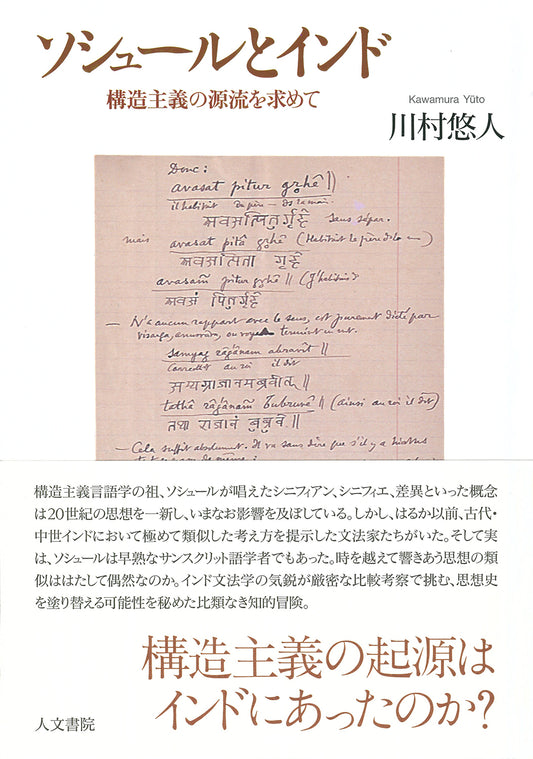 ソシュールとインド
構造主義の源流を求めて
Kawamura Yūto
川村悠人
Donc:
avasat pitur gṛhê ||
il habitait du père — ds la maison.
अवसत्पितुर्गृहे sans sépar.
mais avasat pitâ gṛhê (Habitait le père ds la —)
अवसत्पिता गृहे
avasam̃ pitur gṛhê || (J'habitais d
अवसं पितुर्गृहे
— N'a aucun rapport avec le sens, est purement dicté par
visarga, anusvâra, ou voyelle terminant un mot.
samyag râǵânam abravît ||
Correctt au roi il dit
सम्यग्राजानमब्रवीत् ||
tathâ râǵânam̃ bubruvê || (ainsi au roi il dit)
तथा राजानं बुब्रुवे ||
— Cela suffit absolument. Il va sans dire que s'il y a
構造主義言語学の祖、ソシュールが唱えたシニフィアン、シニフィエ、差異といった概念
は20世紀の思想を一新し、いまなお影響を及ぼしている。しかし、はるか以前、古代・
中世インドにおいて極めて類似した考え方を提示した文法家たちがいた。そして実
は、ソシュールは早熟なサンスクリット語学者でもあった。時を越えて響きあう思想の類
似ははたして偶然なのか。インド文法学の気鋭が厳密な比較考察で挑む、思想史
を塗り替える可能性を秘めた比類なき知的冒険。
構造主義の起源は
インドにあったのか?
人文書院